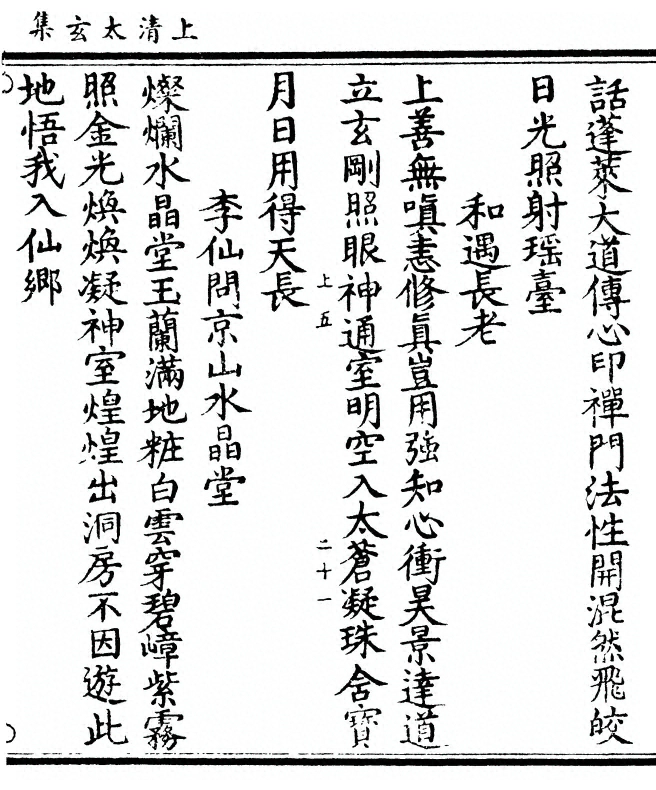 上清太玄集
話蓬萊大道傳心印禪門法性開混然飛皎
日光照射瑶臺
和遇長老
上善無嗔恚修眞豈用強知心衝昊景達道
立玄剛照眼神通室明空入太蒼凝珠舍寶
上五
二十一
月日用得天長
李仙問京山水晶堂
燦爛水晶堂玉蘭滿地粧白雲穿碧嶂紫霧
照金光煥煥凝神室煌煌出洞房不因遊此
地悟我入仙鄉